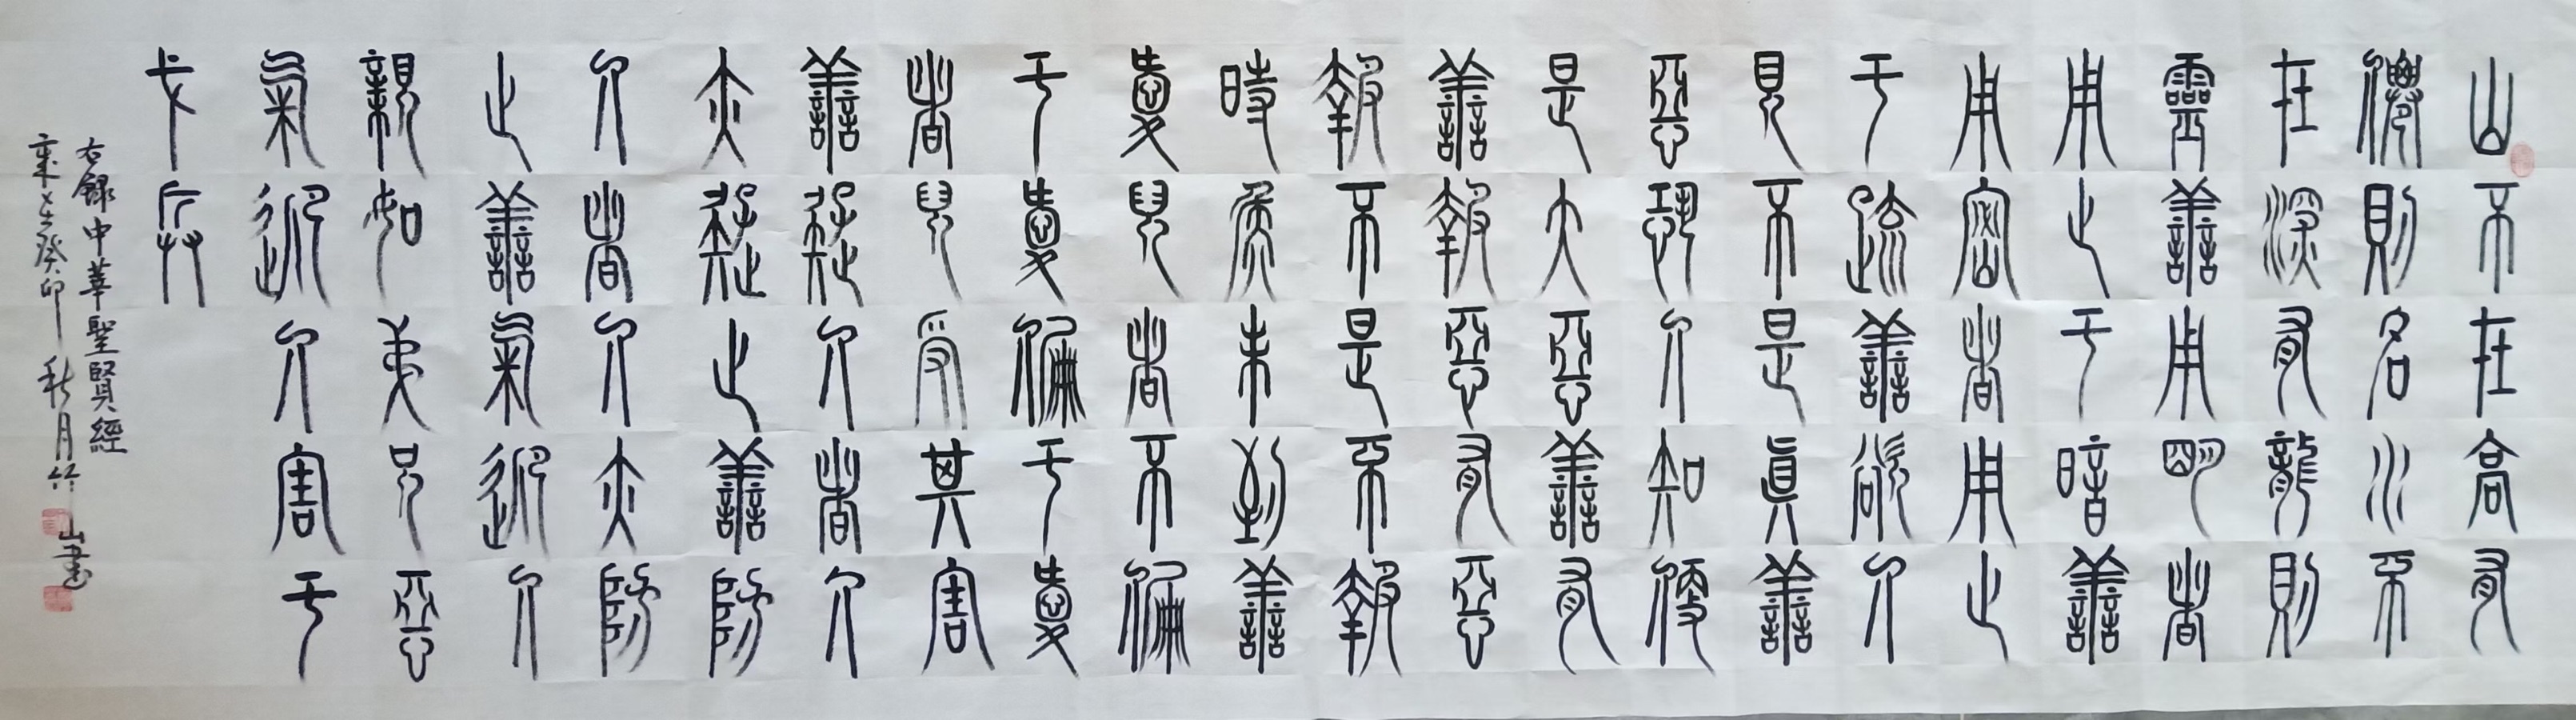 山不在高有
僊則名水不
在深有龍則
靈善用明者
用之于暗善
用密者用之
于疏善欲人
見不是真善
惡恐人知便
是大惡善有
善報惡有惡
報不是不報
時候未到善
愛兒者不偏
于愛偏于愛
者兒受其害
善疑人者人
亦疑之善防
人者人亦防
之善氣迎人
親如弟兄惡
氣迎人害于
戈兵
右錄中華聖賢經
癸卯秋月竹山書